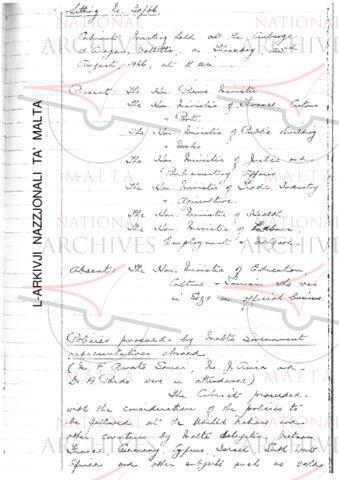 Sitting No. 20/66
Cabinet Meeting held at the Auberge
d'Aragon, Valletta, on Thursday 25th
August, 1966 at 11 a.m.
Present: The Hon. Prime Minister
The Hon. Minister of Finance, Customs
& Port.
The Hon. Minister of Public Building
& Works
The Hon. Minister of Justice and
Parliamentary Affairs
The Hon. Minister of Trade, Industry
& Agriculture
The Hon. Minister of Health
The Hon. Minister of Labour,
Employment & Welfare
Absent: The Hon. Minister of Education
Culture & Tourism who was
in on official business.
Policies pursued by Malta Government
representatives abroad
(Mr. F. Amato Gauci, Mr. J. and
Dr. A. Pardo were in attendance)
The Cabinet proceeded
with the consideration of the policies to
be followed at the United Nations and
other countries by Malta delegates, Vietnam
Germany, Cyprus, Israel, South West
Africa and other subjects such as world
L-ARKIVJI NAZZJONALI TA' MALTA
NATIONAL
ARCHIVES
MALTA